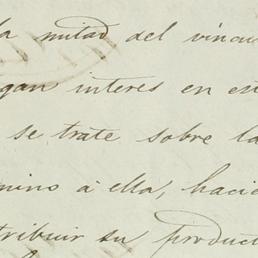 la mitad del vincu
gan interes en es
se trate sobre la
mino á ella, hacie
tribuir su product